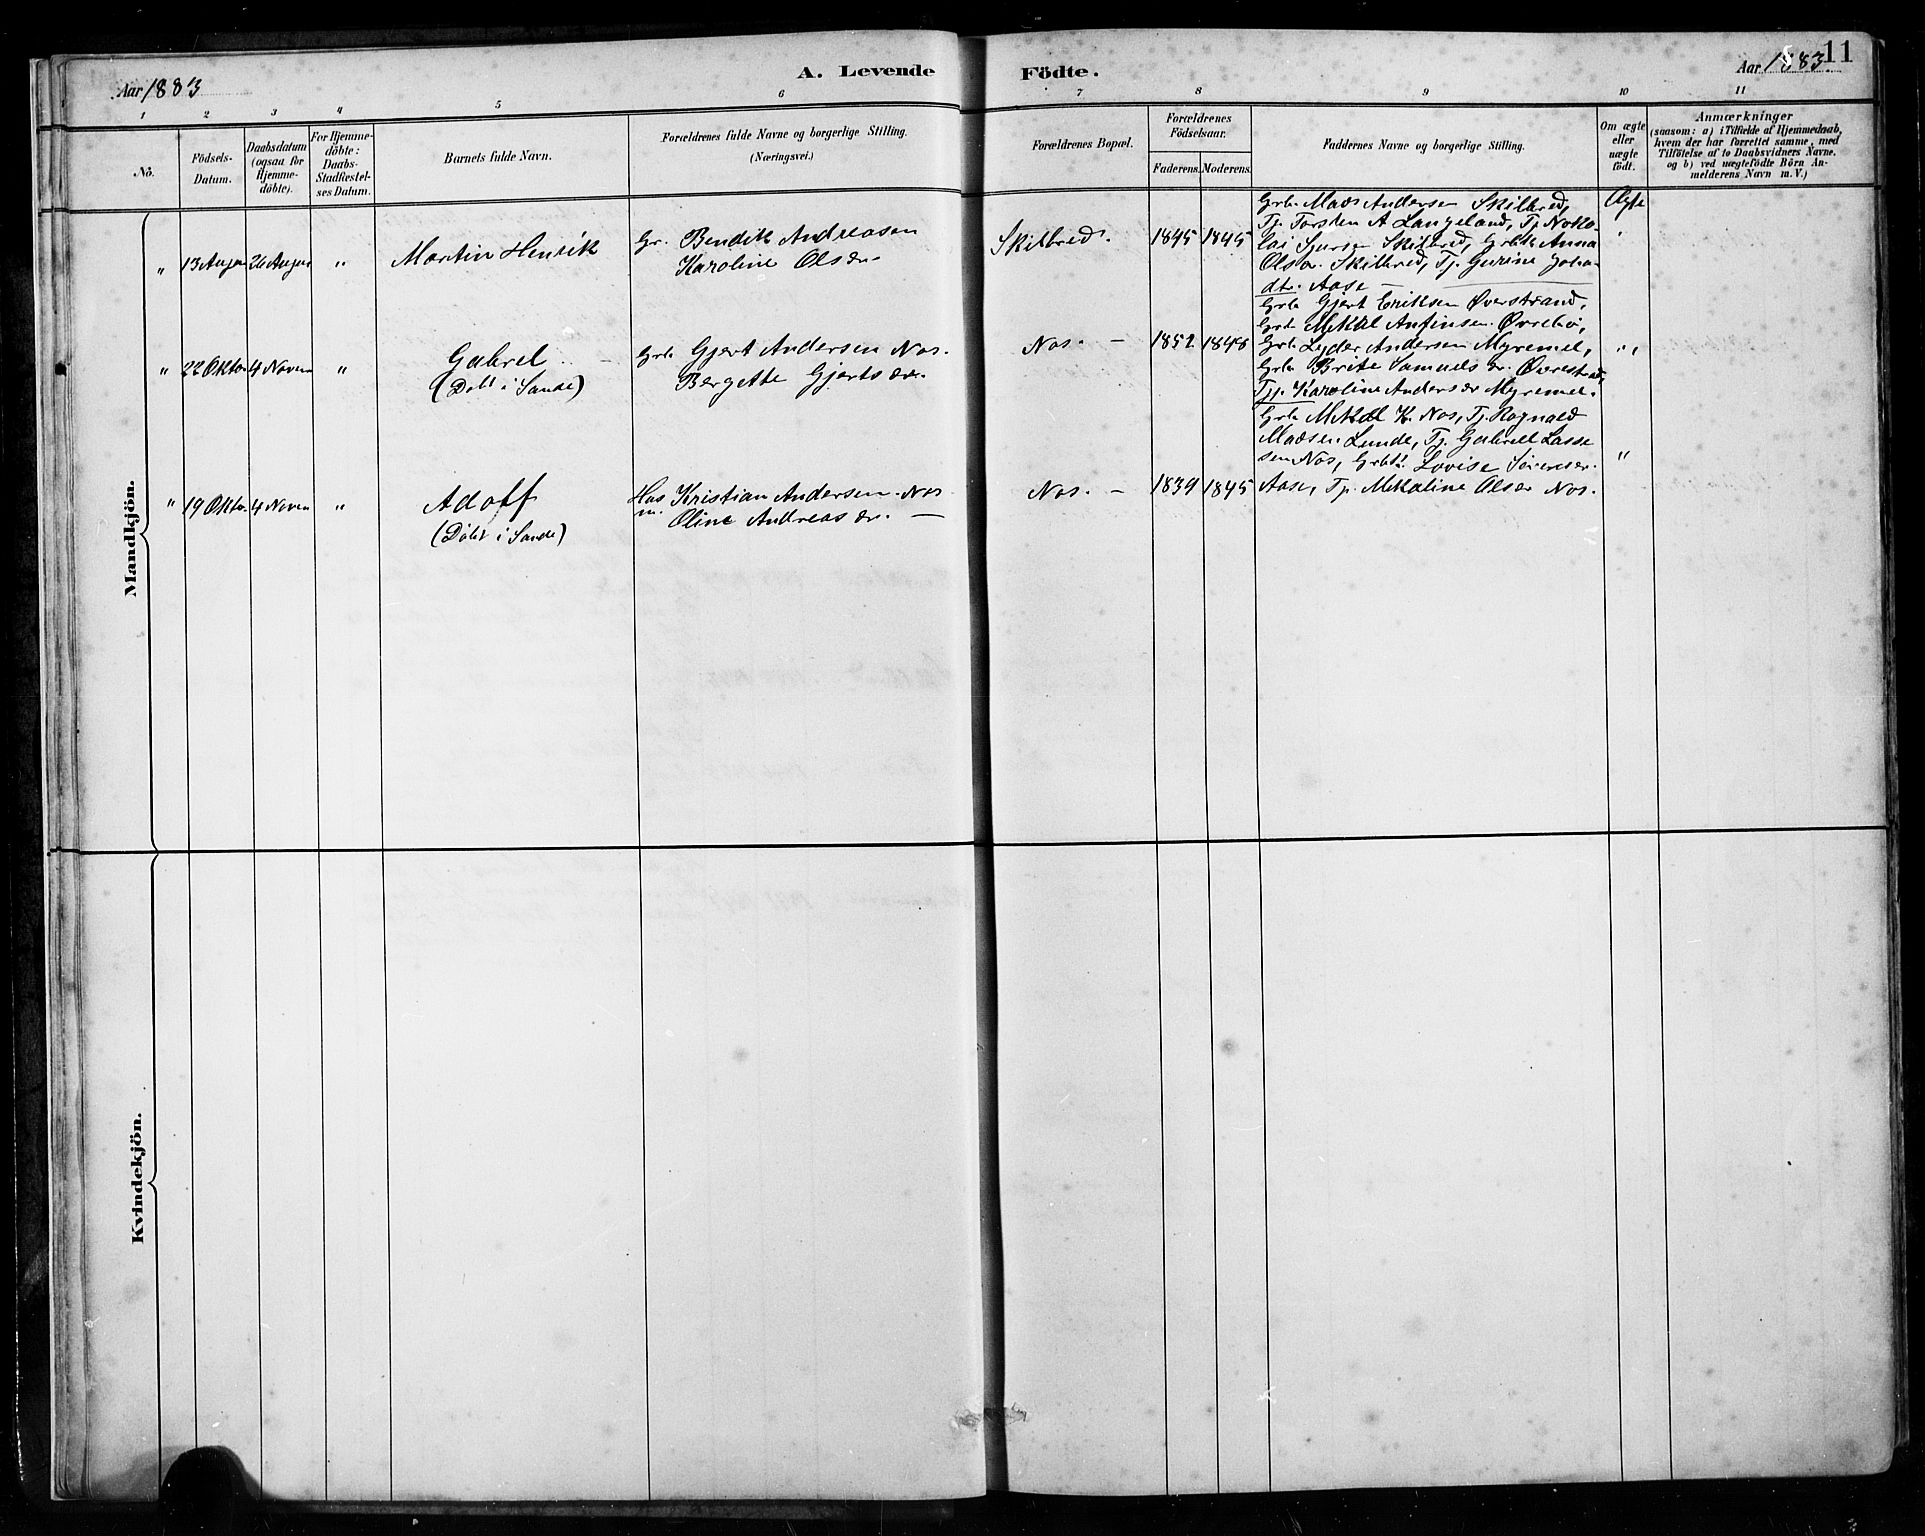 Aar 1883
A. Levende Födte.
Aar 1883.
11
1 2 3 4 5 6 7 8 9 10 11
No.
Födsels-
Datum.
Daabsdatum
(ogsaa for
Hjemme-
döbte).
For Hjemme-
döbte:
Daabs-
Stadfæstel-
ses Datum.
Barnets fulde Navn.
Forældrenes fulde Navne og borgerlige Stilling.
(Næringsvei.)
Forældrenes Bopæl.
Forældrenes
Födselsaar.
Faderens. Moderens.
Faddernes Navne og borgerlige Stilling.
Om ægte
eller
uægte
födt.
Anmærkninger
(saasom: a) i Tilfælde af Hjemmedaab,
hvem der har forrettet samme, med
Tilföielse af to Daabsvidners Navne.
og b) ved uægtefödte Börn An-
melderens Navn m. V.)
Mandkjön.
" 13 August 26 August "
Martin Henrik
Gr. Bendik Andreasen
Karoline Olsdr.
Skilbred.
1845 1845
Grb. Mads Andersen Skilbred,
Tj. Torsten A Langeland, Tj. Noko-
lai Sjursen Skilbred, Grbk Anna
Olsdr. Skilbred, Tj. Gurine Joha-
dtr. Aase —
Ægte
" 22 Oktbr. 4 Novem "
Gabrel
(Döbt i Sande)
Grb. Gjert Andersen Nos.
Bergette Gjertsdr.
Nos. —
1852 1848
Grb. Gjert Eriksen Øverstrand,
Grb. Mekal Anfinsen Øvrebö,
Grb. Leder Andersen Myremel,
Grb. Brite Samuelsdr. Øverstrand,
Tj. Karoline Andersdr Myremel.
"
" 19 Oktbr. 4 Novem "
Adolf
(Döbt i Sande)
Hus
m. Kristian Andersen Nos
Oline Andreasdr. —
Nos. —
1839 1845
Grb. Mekal K. Nos, Tj. Ragnald
Madsen Lunde, Tj. Gabriel Lasse
sen Nos, Grbk. Lovise Sörensdr.
Aase, Tj. Mekaline Olsdr Nos.
"
Kvindekjön.